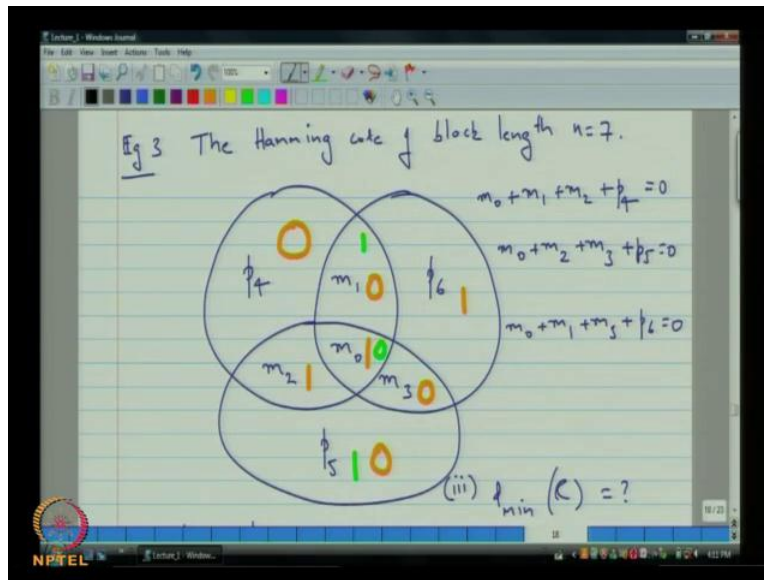 Lecture_1 - Windows Journal
File Edit View Insert Actions Tools Help
100%
B I
Eg 3 The Hamming code of block length n=7.
m0 + m1 + m2 + p4 = 0
m0 + m2 + m3 + p5 = 0
m0 + m1 + m3 + p6 = 0
0
1
p4
m1 0
p6
1
m0 1 0
m2 1
m3 0
p5 1 0
(iii) dmin (C) = ?
18 / 23
18
NPTEL
Lecture_1 - Window...
4:11 PM